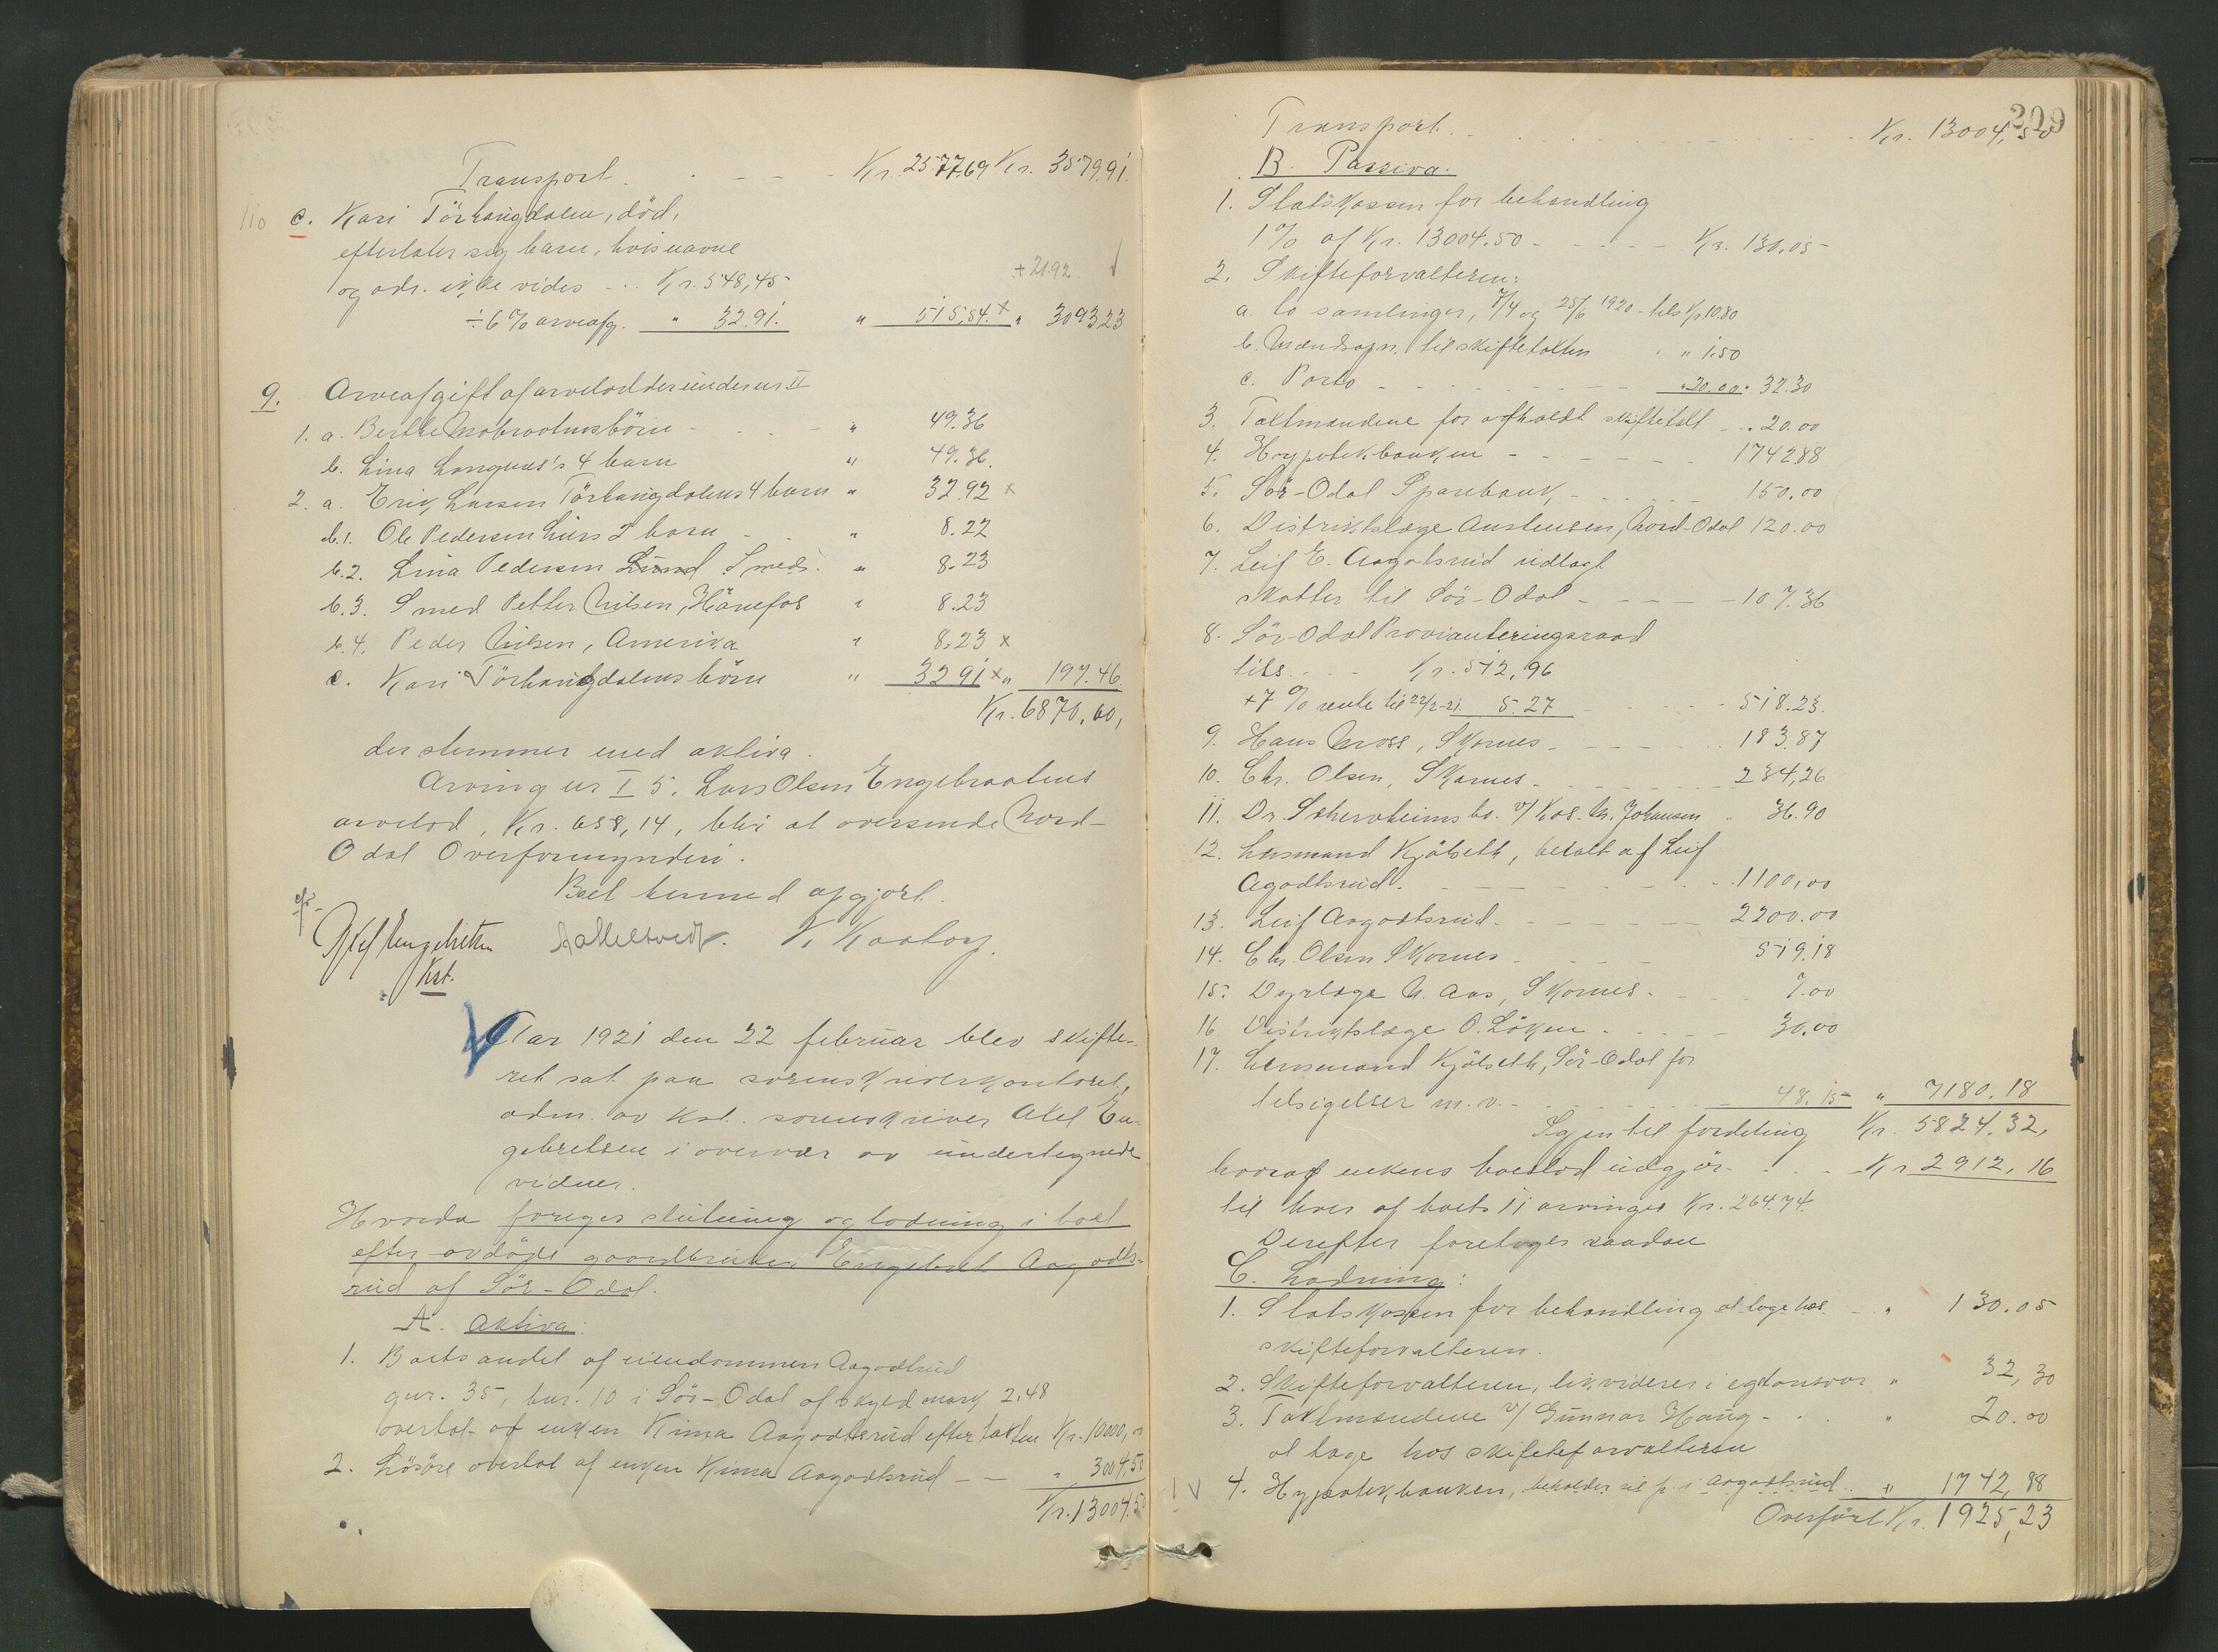 Transport. - - - Kr. 2577,69 Kr. 3579,91.
c. Kari Törhaugdalen, död,
efterlater sig barn, hvis navne
og adr. ikke vides - . . Kr. 548,45
+ 21.92
÷ 6 % arveafg. " 32.91. " 515,54. x " 3093.23
9. Arveafgift af arvelodder under nr II
1. a. Berthe Mobraatens börn - - - " 49.36
b. Lina Langnes's 4 barn " 49.36.
2. a. Erik Larsen Törhaugdalens 4 barn " 32.92 x
b.1. Ole Pedersen Liers 2 barn - - " 8.22
b.2. Lina Pedersen Lund Smeds. " 8.23
b.3. Smed Petter Nilsen, Hönefos " 8.23
b.4. Peder Nilsen, Amerika " 8.23 x
c. Kari Törhaugdalens börn " 32 91 x " 197.46.
Kr. 6870,60,
der stemmer med aktiva.
Arving nr I 5. Lars Olsen Engebraatens
arvelod, Kr. 658,14, blir at oversende Nord-
Odal Overformynderi.
Boet hermed opgjort.
Axel Engebretsen K. Kaatorp.
Kst.
Aar 1921 den 22 februar blev skifte-
ret sat paa sorenskriverkontoret,
adm. av kst. sorenskriver Axel En-
gebretsen i overvær av undertegnede
vidner.
Hvorda foreges slutning og lodning i boet
efter avdöde gaardbruker Engebret Aagodts-
rud af Sör-Odal.
A. Aktiva:
1. Boets andel af eiendommen Aagodtsrud
gnr. 35, bnr. 10 i Sör-Odal af skyld mark 2.48
overtat af enken Kima Aagodtsrud efter takten Kr. 10000,00
2. Lösöre overtat af enken Kima Aagodtsrud - - " 3004,50
Kr. 13004.50
209
Transport. . . . . Kr. 13004,50
B. Passiva.
1. Statskassen for behandling
1 % af Kr. 13004.50 - - - - Kr. 130,05
2. Skifteforvalteren:
a. to samlinger, 7/4 og 25/6 1920 - tils Kr 10.80
b. Mændsopn. til skiftetakten " " 1.50
c. Porto - - - - - " 20.00 " 32.30
3. Takstmændene for afholdt skiftetakt - " 20.00
4. Hypotekbanken - - - - - - 1742.88
5. Sör-Odal Sparebank - - - - 150.00
6. Distriktslæge Austensen, Nord-Odal 120.00
7. Leif E. Aagotsrud utlagt
skatter til Sör-Odal - - - - - 107.36
8. Sör-Odal Provianteringsraad
tils. - - - Kr. 512,96
+7 % rente til 22/2-21. 5.27 - - - - 518.23.
9. Hans Moss, Skarnes - - - - - 183.87
10. Chr. Olsen, Skarnes - - - - - 234,26
11. Dr. Scherdteims bo. v/ Kas. M. Johansen " 36.90
12. Lensmand Kjölseth, betalt af Leif
Agodtsrud. - - - - - - - 1100,00
13. Leif Aagodtsrud - - - - - 2200.00
14. Chr. Olsen Skarnes - - - - 519.18
15. Dyrlæge N. Aas, Skarnes - - - 7.00
16. Distriktslæge O. Löken - - - - 30.00
17. Lensmand Kjölseth, Sör-Odal for
tilsigelser m. v. - - - - - - 48.15 " 7180.18
Igjen til fordeling Kr. 5824.32,
hvoraf enkens boeslod utgjör - - - - Kr 2912,16
til hver af boets 11 arvinger Kr. 264.74.
Derefter foretoges saadan
C. Lodning:
1. Statskassen for behandling at tage hos - " 130.05
skifteforvalteren.
2. Skifteforvalteren, likviderer i eget ansvar " 32,30
3. Takstmændene v/ Gunnar Haug - - - " 20.00
at tage hos skifteforvalteren
4. Hypotekbanken, beholder sit p. i Aagodtsrud " 1742,88
Overfört Kr. 1925,23